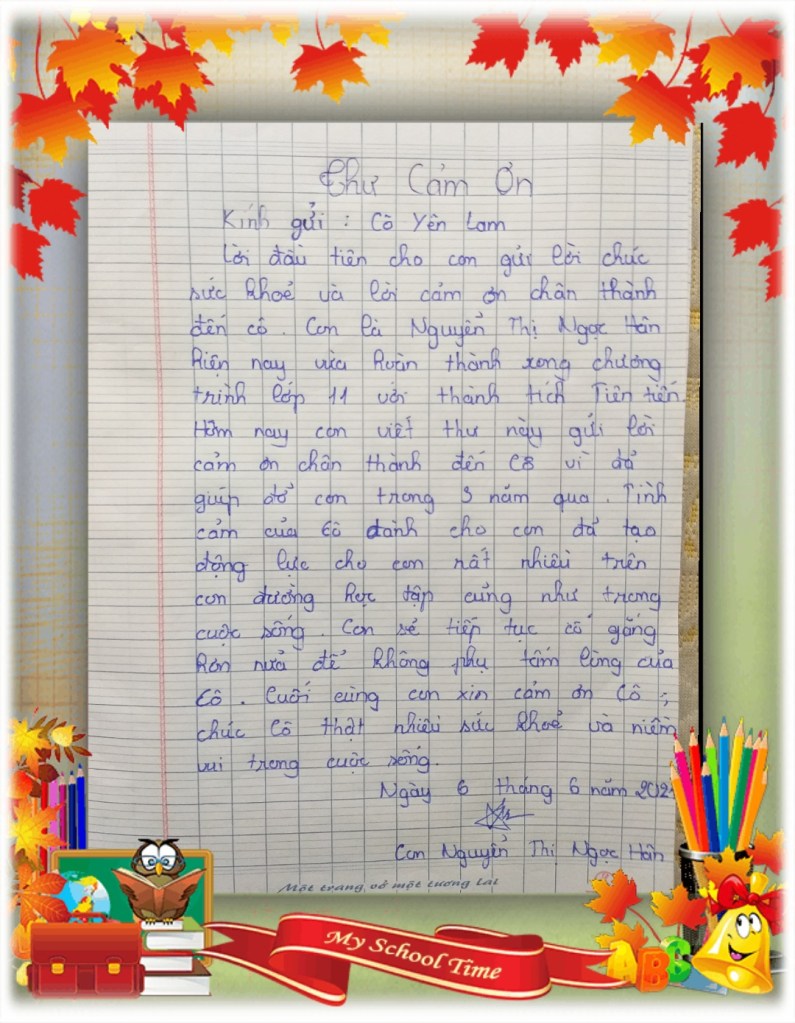 Thư Cảm Ơn
Kính gửi : Cô Yên Lam
Lời đầu tiên cho con gửi lời chúc
sức khoẻ và lời cảm ơn chân thành
đến cô. Con là Nguyễn Thị Ngọc Hân
hiện nay vừa hoàn thành xong chương
trình lớp 11 với thành tích Tiên tiến.
Hôm nay con viết thư này gửi lời
cảm ơn chân thành đến Cô vì đã
giúp đỡ con trong 3 năm qua. Tình
cảm của Cô dành cho con đã tạo
động lực cho con rất nhiều trên
con đường học tập cũng như trong
cuộc sống. Con sẽ tiếp tục cố gắng
hơn nữa để không phụ tấm lòng của
Cô. Cuối cùng con xin cảm ơn Cô ;
chúc Cô thật nhiều sức khoẻ và niềm
vui trong cuộc sống.
Ngày 6 tháng 6 năm
Con Nguyễn Thị Ngọc Hân
Một trang vở một tương lai
My School Time
ABC